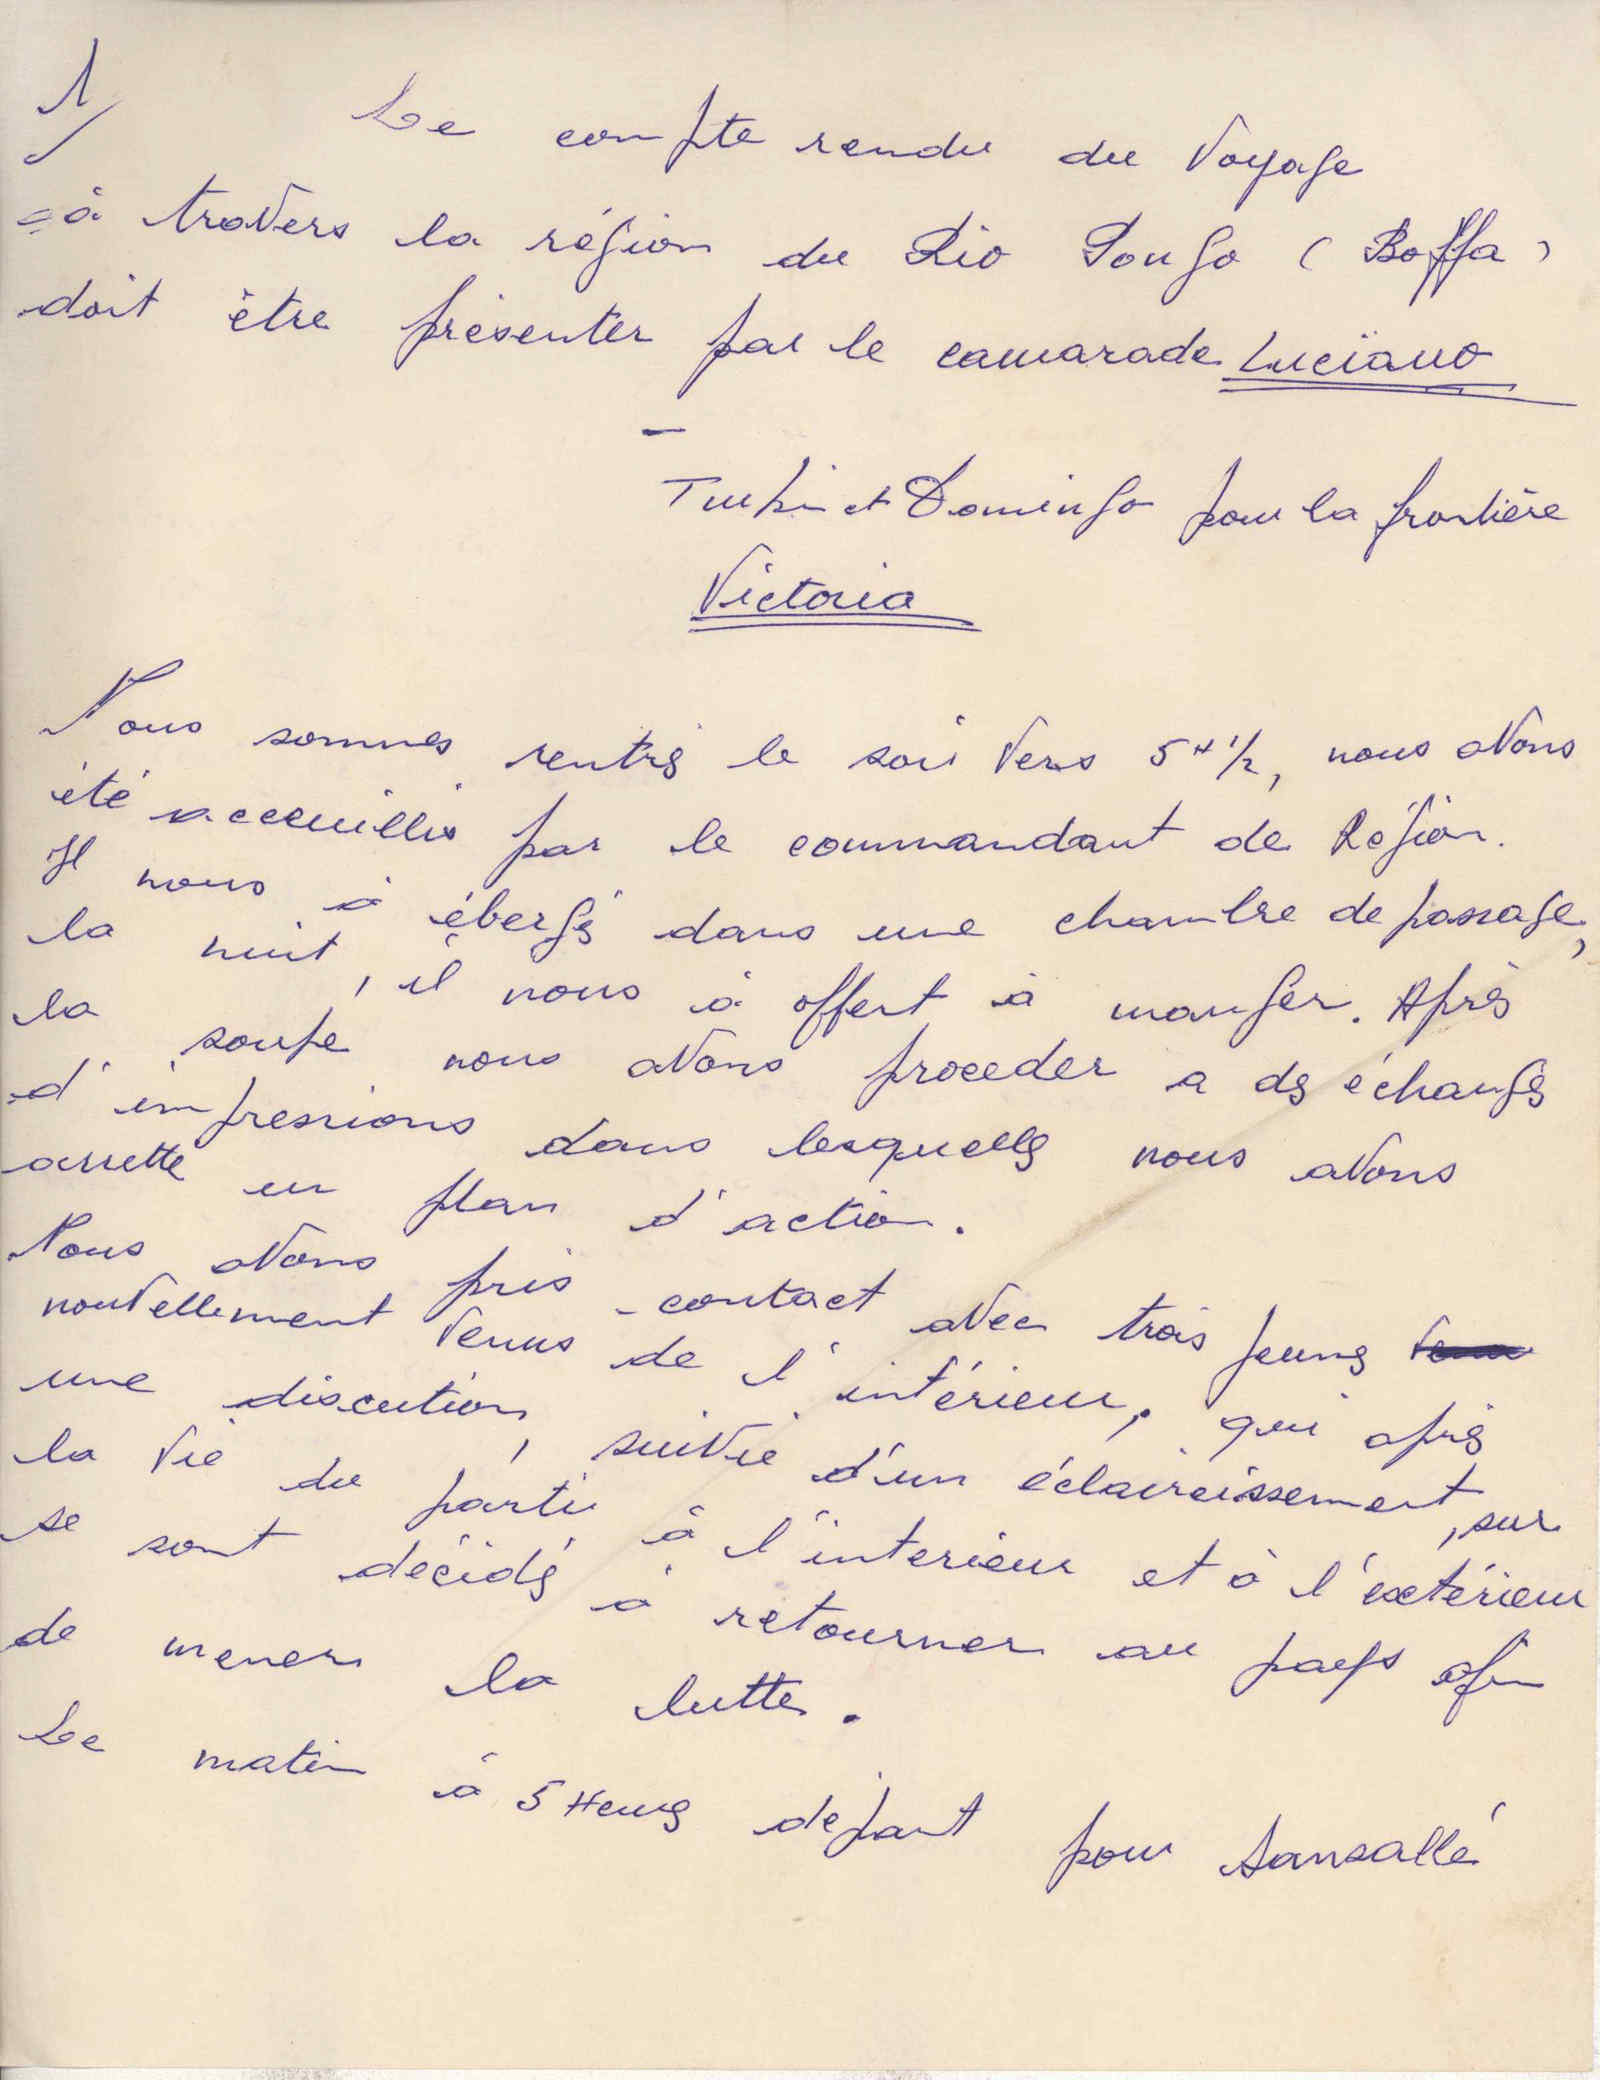 1/
Le compte rendu du Voyage
à traVers la région du Rio Pongo ( Boffa )
doit être présenter par le camarade Luciano
Turpin et Domingo pour la frontière
Victoria
Nous sommes rentrés le soir Vers 5H 1/2, nous aVons
été acceuillis par le commandant de Région.
Il nous à ébergé dans une chambre de passage,
la nuit, il nous à offert à manger. Après
la soupe nous aVons proceder a des échanges
d'impressions dans lesquells nous aVons
arretté un plan d'action.
Nous aVons pris contact aVec trois jeunes
nouVellement Venus de l'intérieur, qui après
une discution, suiVie d'un éclaircissement, sur
la Vie du parti à l'interieur et à l'extérieur
se sont décidés à retourner au pays afin
de mener la lutte.
Le matin à 5 Heures depart pour Sansallé